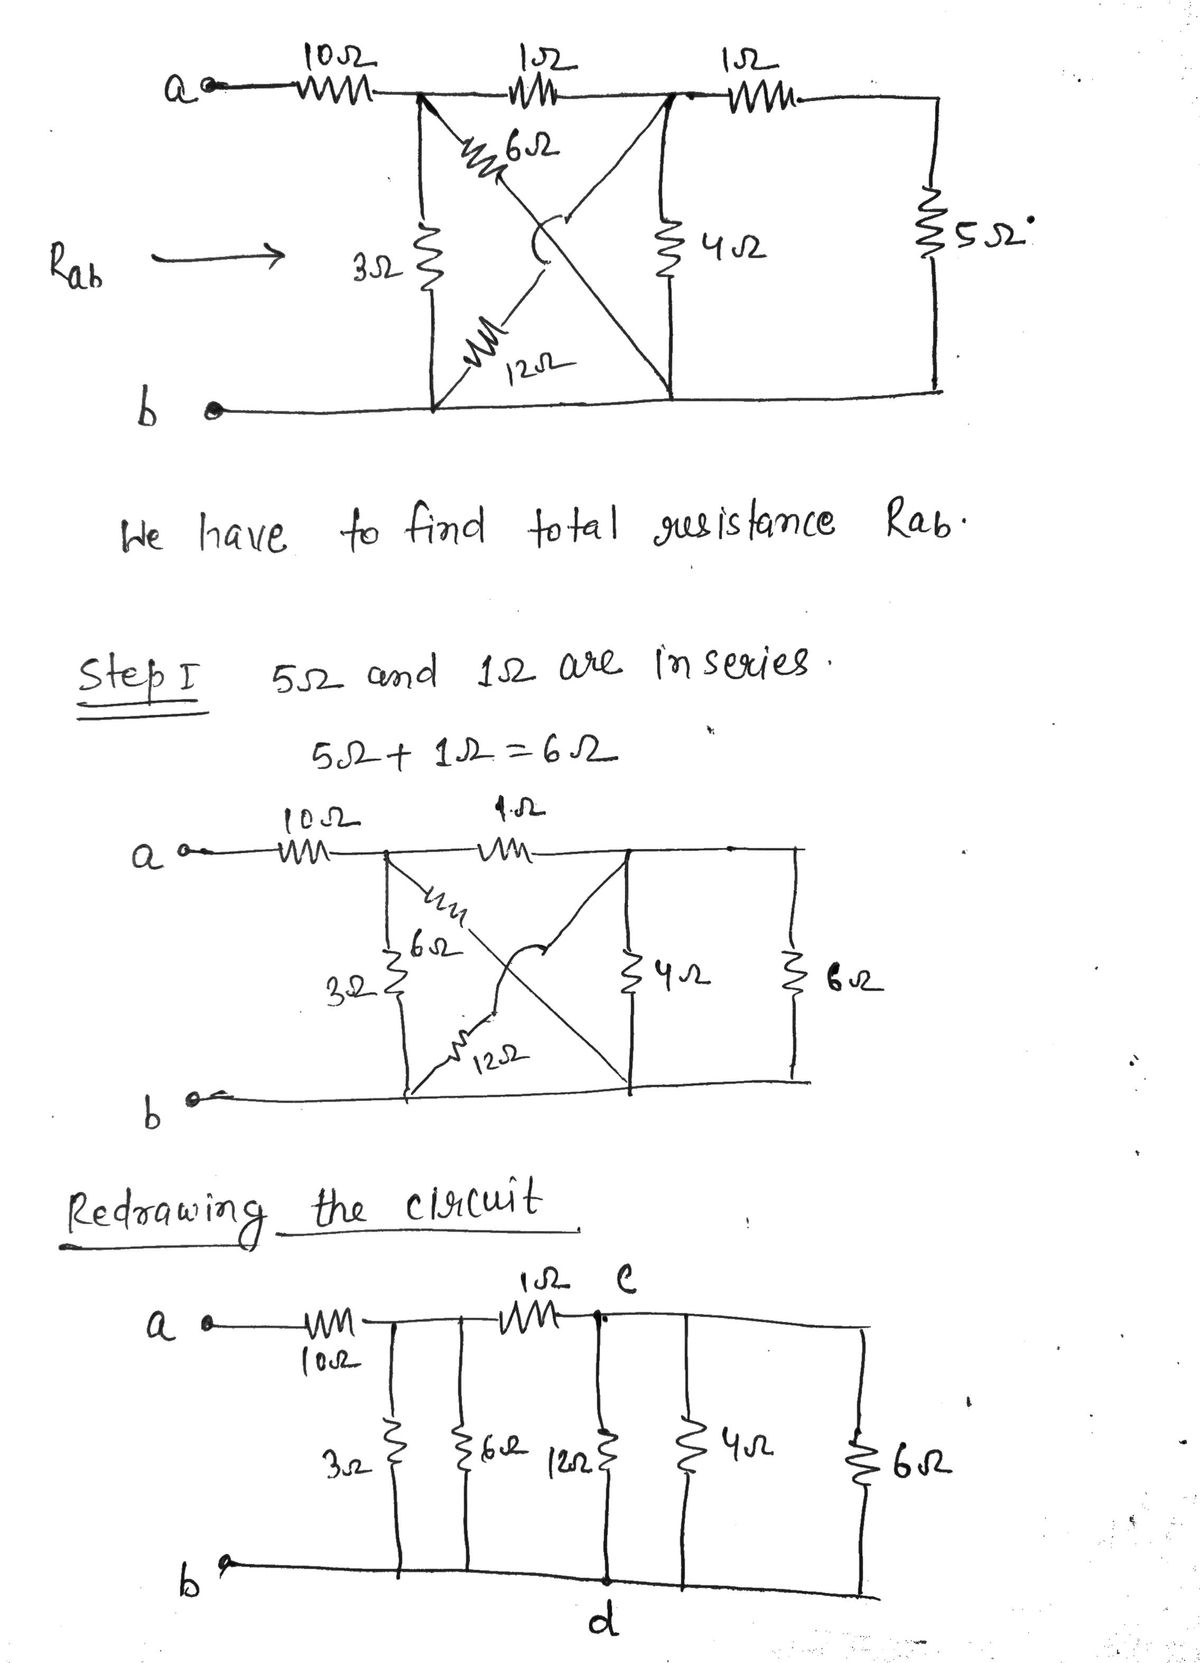 10Ω 1Ω 1Ω
a
6Ω
Rab 3Ω 4Ω 5Ω
12Ω
b
We have to find total resistance Rab.
Step I 5Ω and 1Ω are in series.
5Ω + 1Ω = 6Ω
10Ω 1Ω
a
6Ω
3Ω 4Ω 6Ω
12Ω
b
Redrawing the circuit
1Ω c
a
10Ω
3Ω 6Ω 12Ω 4Ω 6Ω
b
d